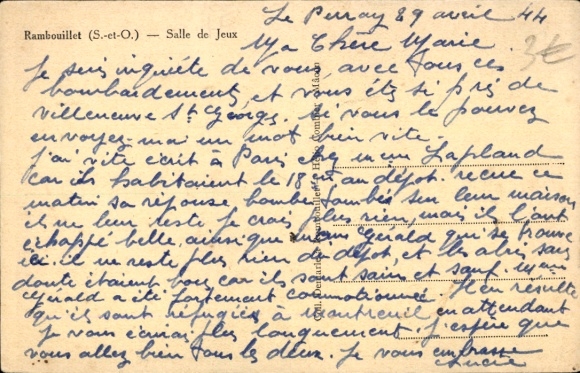 Le Perray 29 avril 44
Rambouillet (S.-et-O.) — Salle de Jeux
Ma Chère Marie.
3€
Je suis inquiéte de vous, avec tous ces
bombardements, et vous étes si près de
villeneuve St Georges. si vous le pouvez
envoyez-moi un mot bien vite.
J'ai vite écrit à Paris chez Lapland
car ils habitaient le 18 au dépot. recue ce
matin sa réponse. bombes tombés sur leur maison
il ne leur reste je crois plus rien, mais ils l'ont
échappé belle, ainsi que Gérald qui se trouve
ici. il ne reste plus rien du dépot, et les abris, sans
doute étaient bons car ils sont sains et saufs.
Gérald a été fortement commotionné. Il en resulte
qu'ils sont réfugiés à Montreuil en attendant
Je vous écrirai plus longuement. J'espére que
vous allez bien tous les deux. Je vous embrasse
Lucie